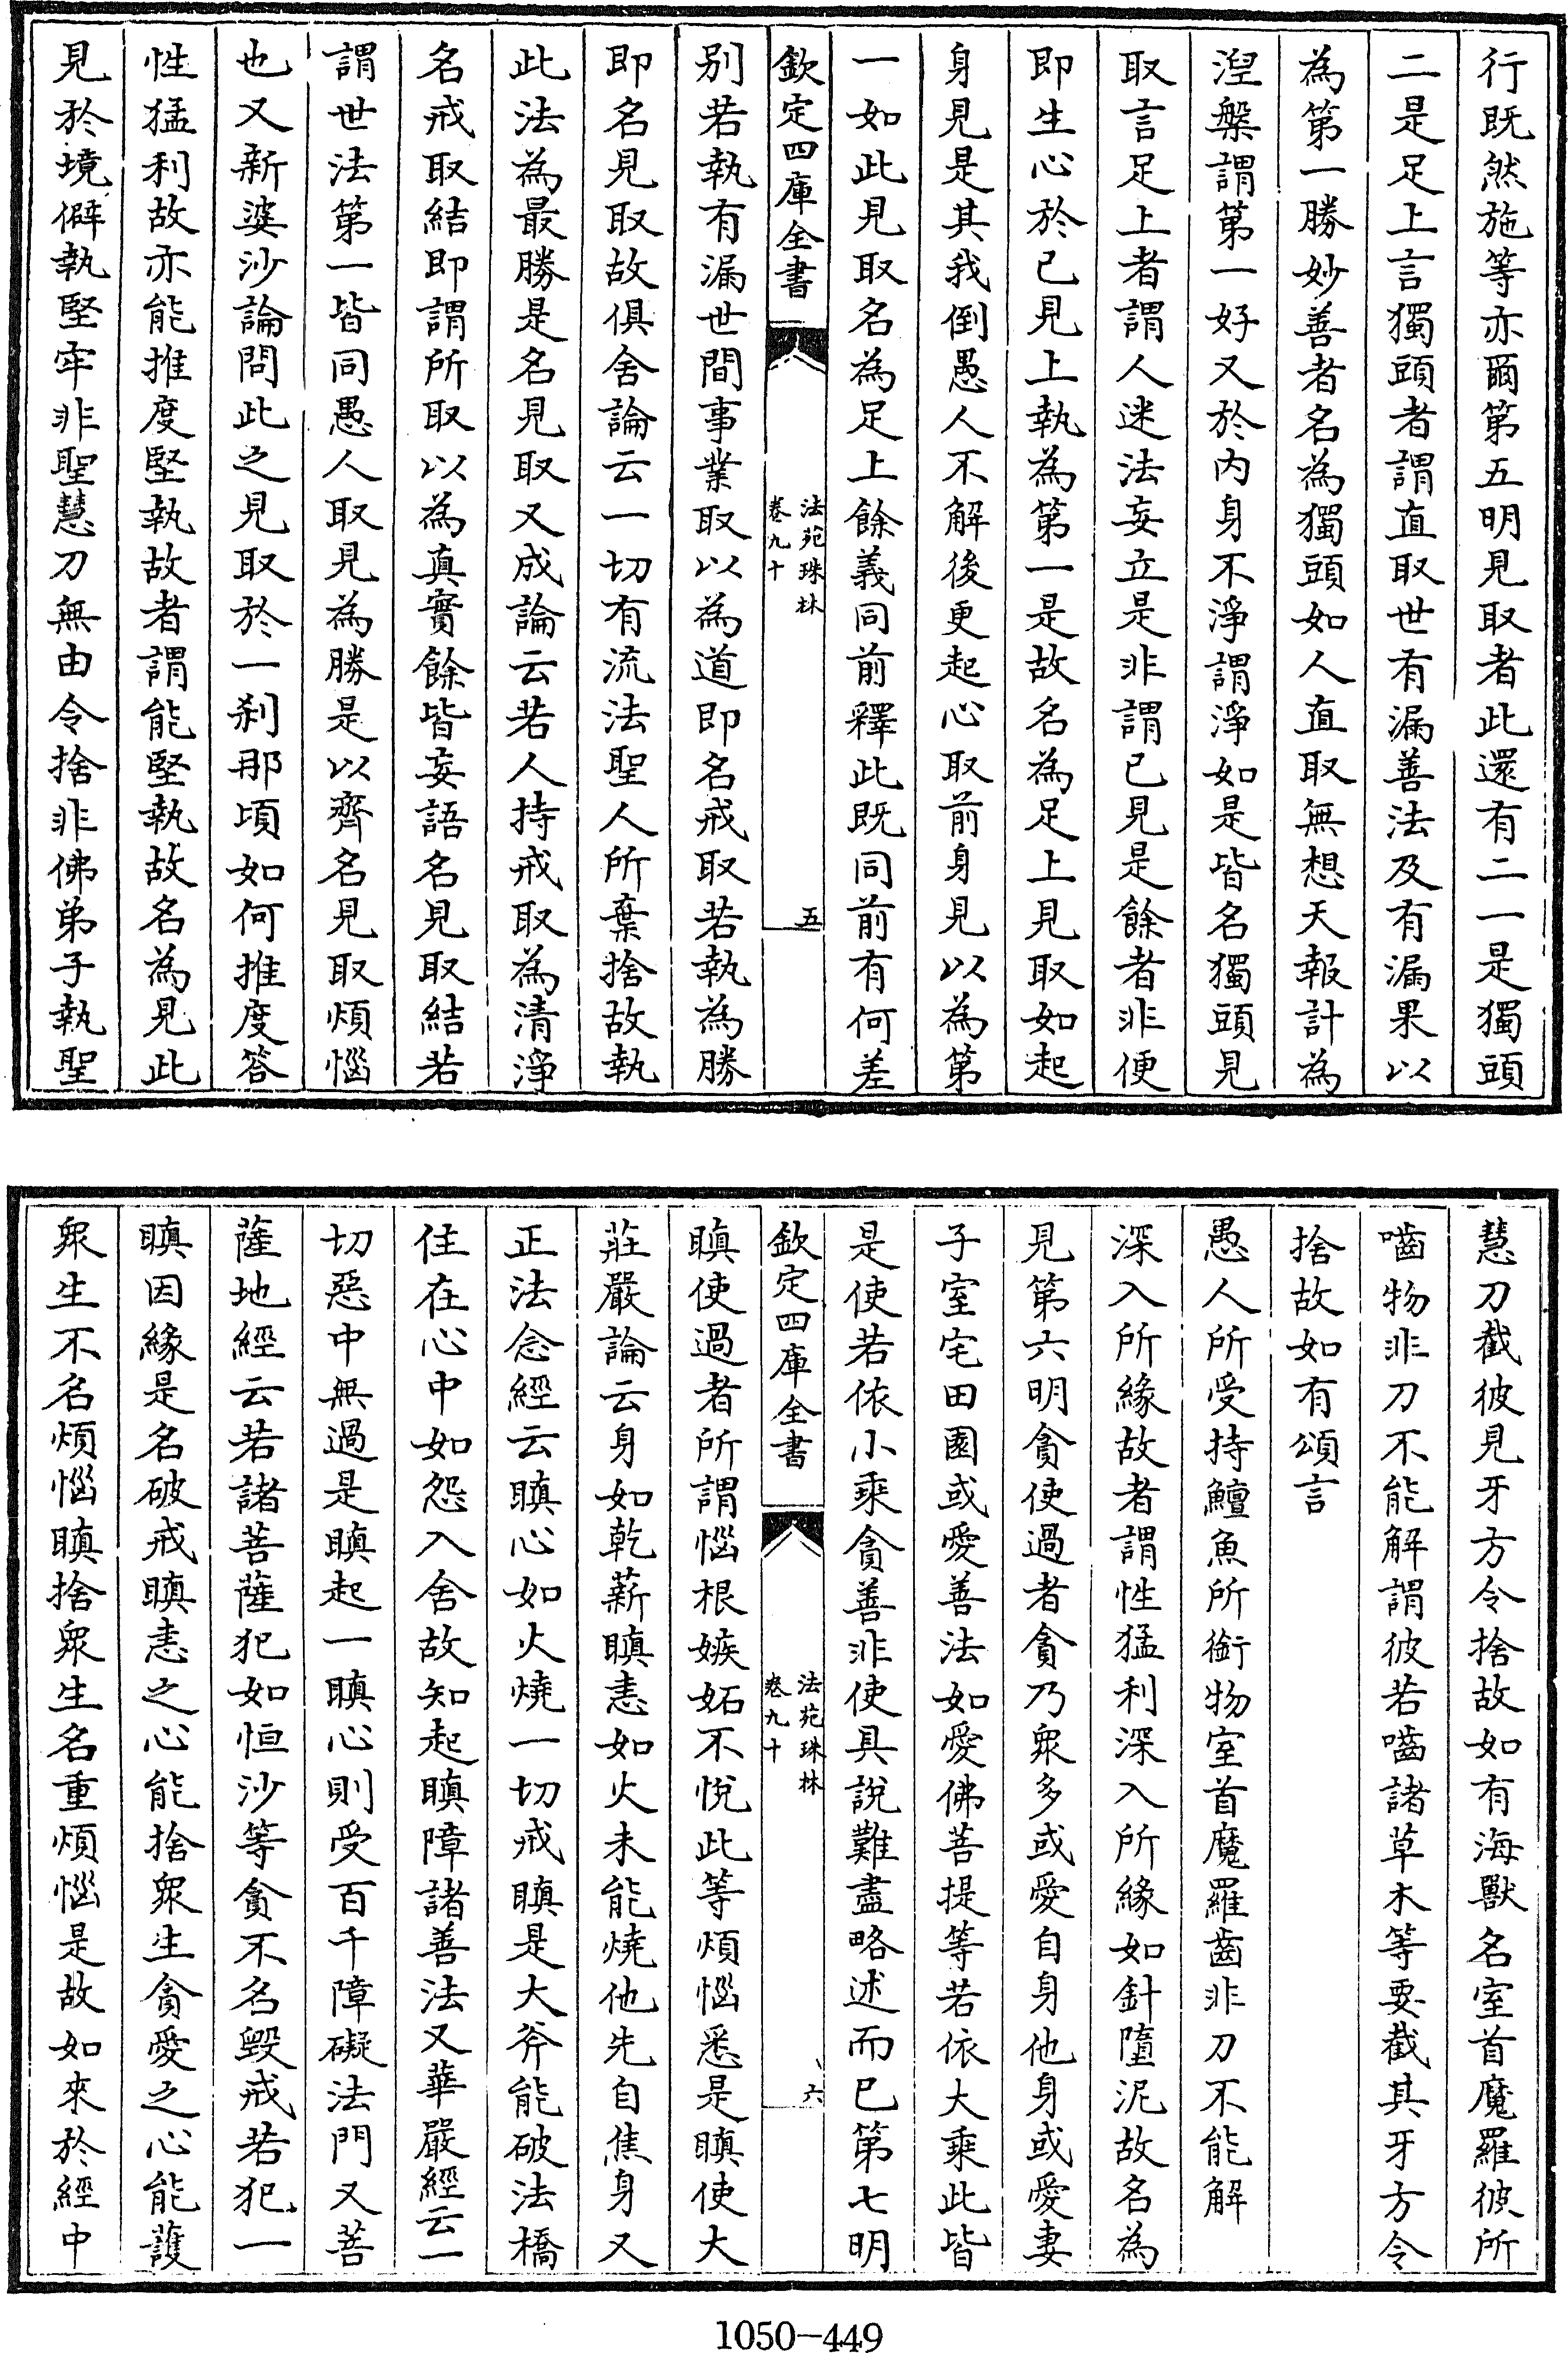 行既然施等亦爾第五明見取者此還有二一是獨頭
二是足上言獨頭者謂直取世有漏善法及有漏果以
為第一勝妙善者名為獨頭如人直取無想天報計為
湼槃謂第一好又於内身不淨謂淨如是皆名獨頭見
取言足上者謂人迷法妄立是非謂已見是餘者非便
即生心於已見上執為第一是故名為足上見取如起
身見是其我倒愚人不解後更起心取前身見以為第
一如此見取名為足上餘義同前釋此既同前有何差
欽定四庫全書
法苑珠林
卷九十
五
别若執有漏世間事業取以為道即名戒取若執為勝
即名見取故俱舍論云一切有流法聖人所棄捨故執
此法為最勝是名見取又成論云若人持戒取為清淨
名戒取結即謂所取以為真實餘皆妄語名見取結若
謂世法第一皆同愚人取見為勝是以齊名見取煩惱
也又新婆沙論問此之見取於一刹那頃如何推度答
性猛利故亦能推度堅執故者謂能堅執故名為見此
見於境僻執堅牢非聖慧刀無由令捨非佛弟子執聖
慧刀截彼見牙方令捨故如有海獸名室首魔羅彼所
嚙物非刀不能解謂彼若嚙諸草木等要截其牙方令
捨故如有頌言
愚人所受持鱣魚所銜物室首魔羅齒非刀不能解
深入所緣故者謂性猛利深入所緣如針墮泥故名為
見第六明貪使過者貪乃衆多或愛自身他身或愛妻
子室宅田園或愛善法如愛佛菩提等若依大乘此皆
是使若依小乘貪善非使具說難盡略述而已第七明
欽定四庫全書
法苑珠林
卷九十
六
瞋使過者所謂惱根嫉妬不悅此等煩惱悉是瞋使大
莊嚴論云身如乾薪瞋恚如火未能燒他先自焦身又
正法念經云瞋心如火燒一切戒瞋是大斧能破法橋
住在心中如怨入舍故知起瞋障諸善法又華嚴經云一
切惡中無過是瞋起一瞋心則受百千障礙法門又菩
薩地經云若諸菩薩犯如恒沙等貪不名毀戒若犯一
瞋因緣是名破戒瞋恚之心能捨衆生貪愛之心能護
衆生不名煩惱瞋捨衆生名重煩惱是故如來於經中
1050-449